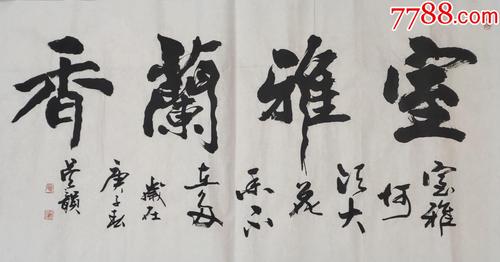 7788.com
室雅蘭香
室雅
何
須大
花
香不
在多
歲在
庚子秋
韻